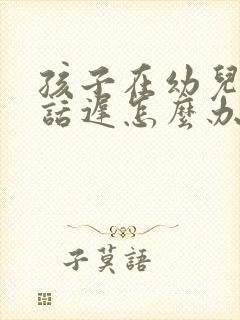 孩子在幼兒
話遲怎麼办
子莫語